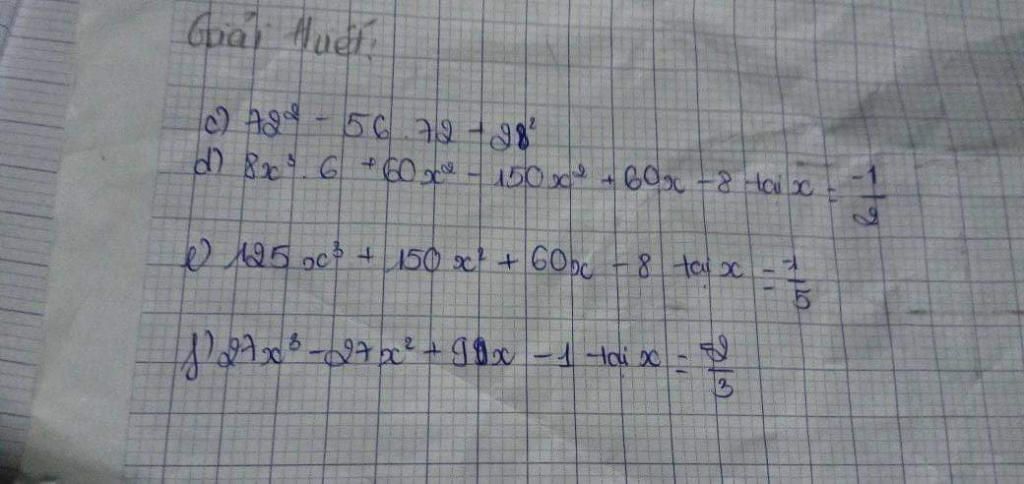 c) 72² - 56 . 72 + 28²
d) 8x³ . 6 + 60x² - 150x² + 60x - 8 tại x = -1/2
e) 125x³ + 150x² + 60x - 8 tại x = -1/5
f) 27x³ - 27x² + 9x - 1 tại x = -2/3